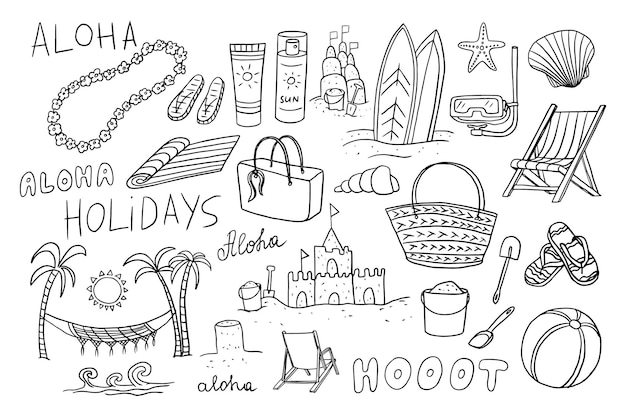 ALOHA
SUN
ALOHA
HOLiDAYS
Aloha
aloha
HOOOT